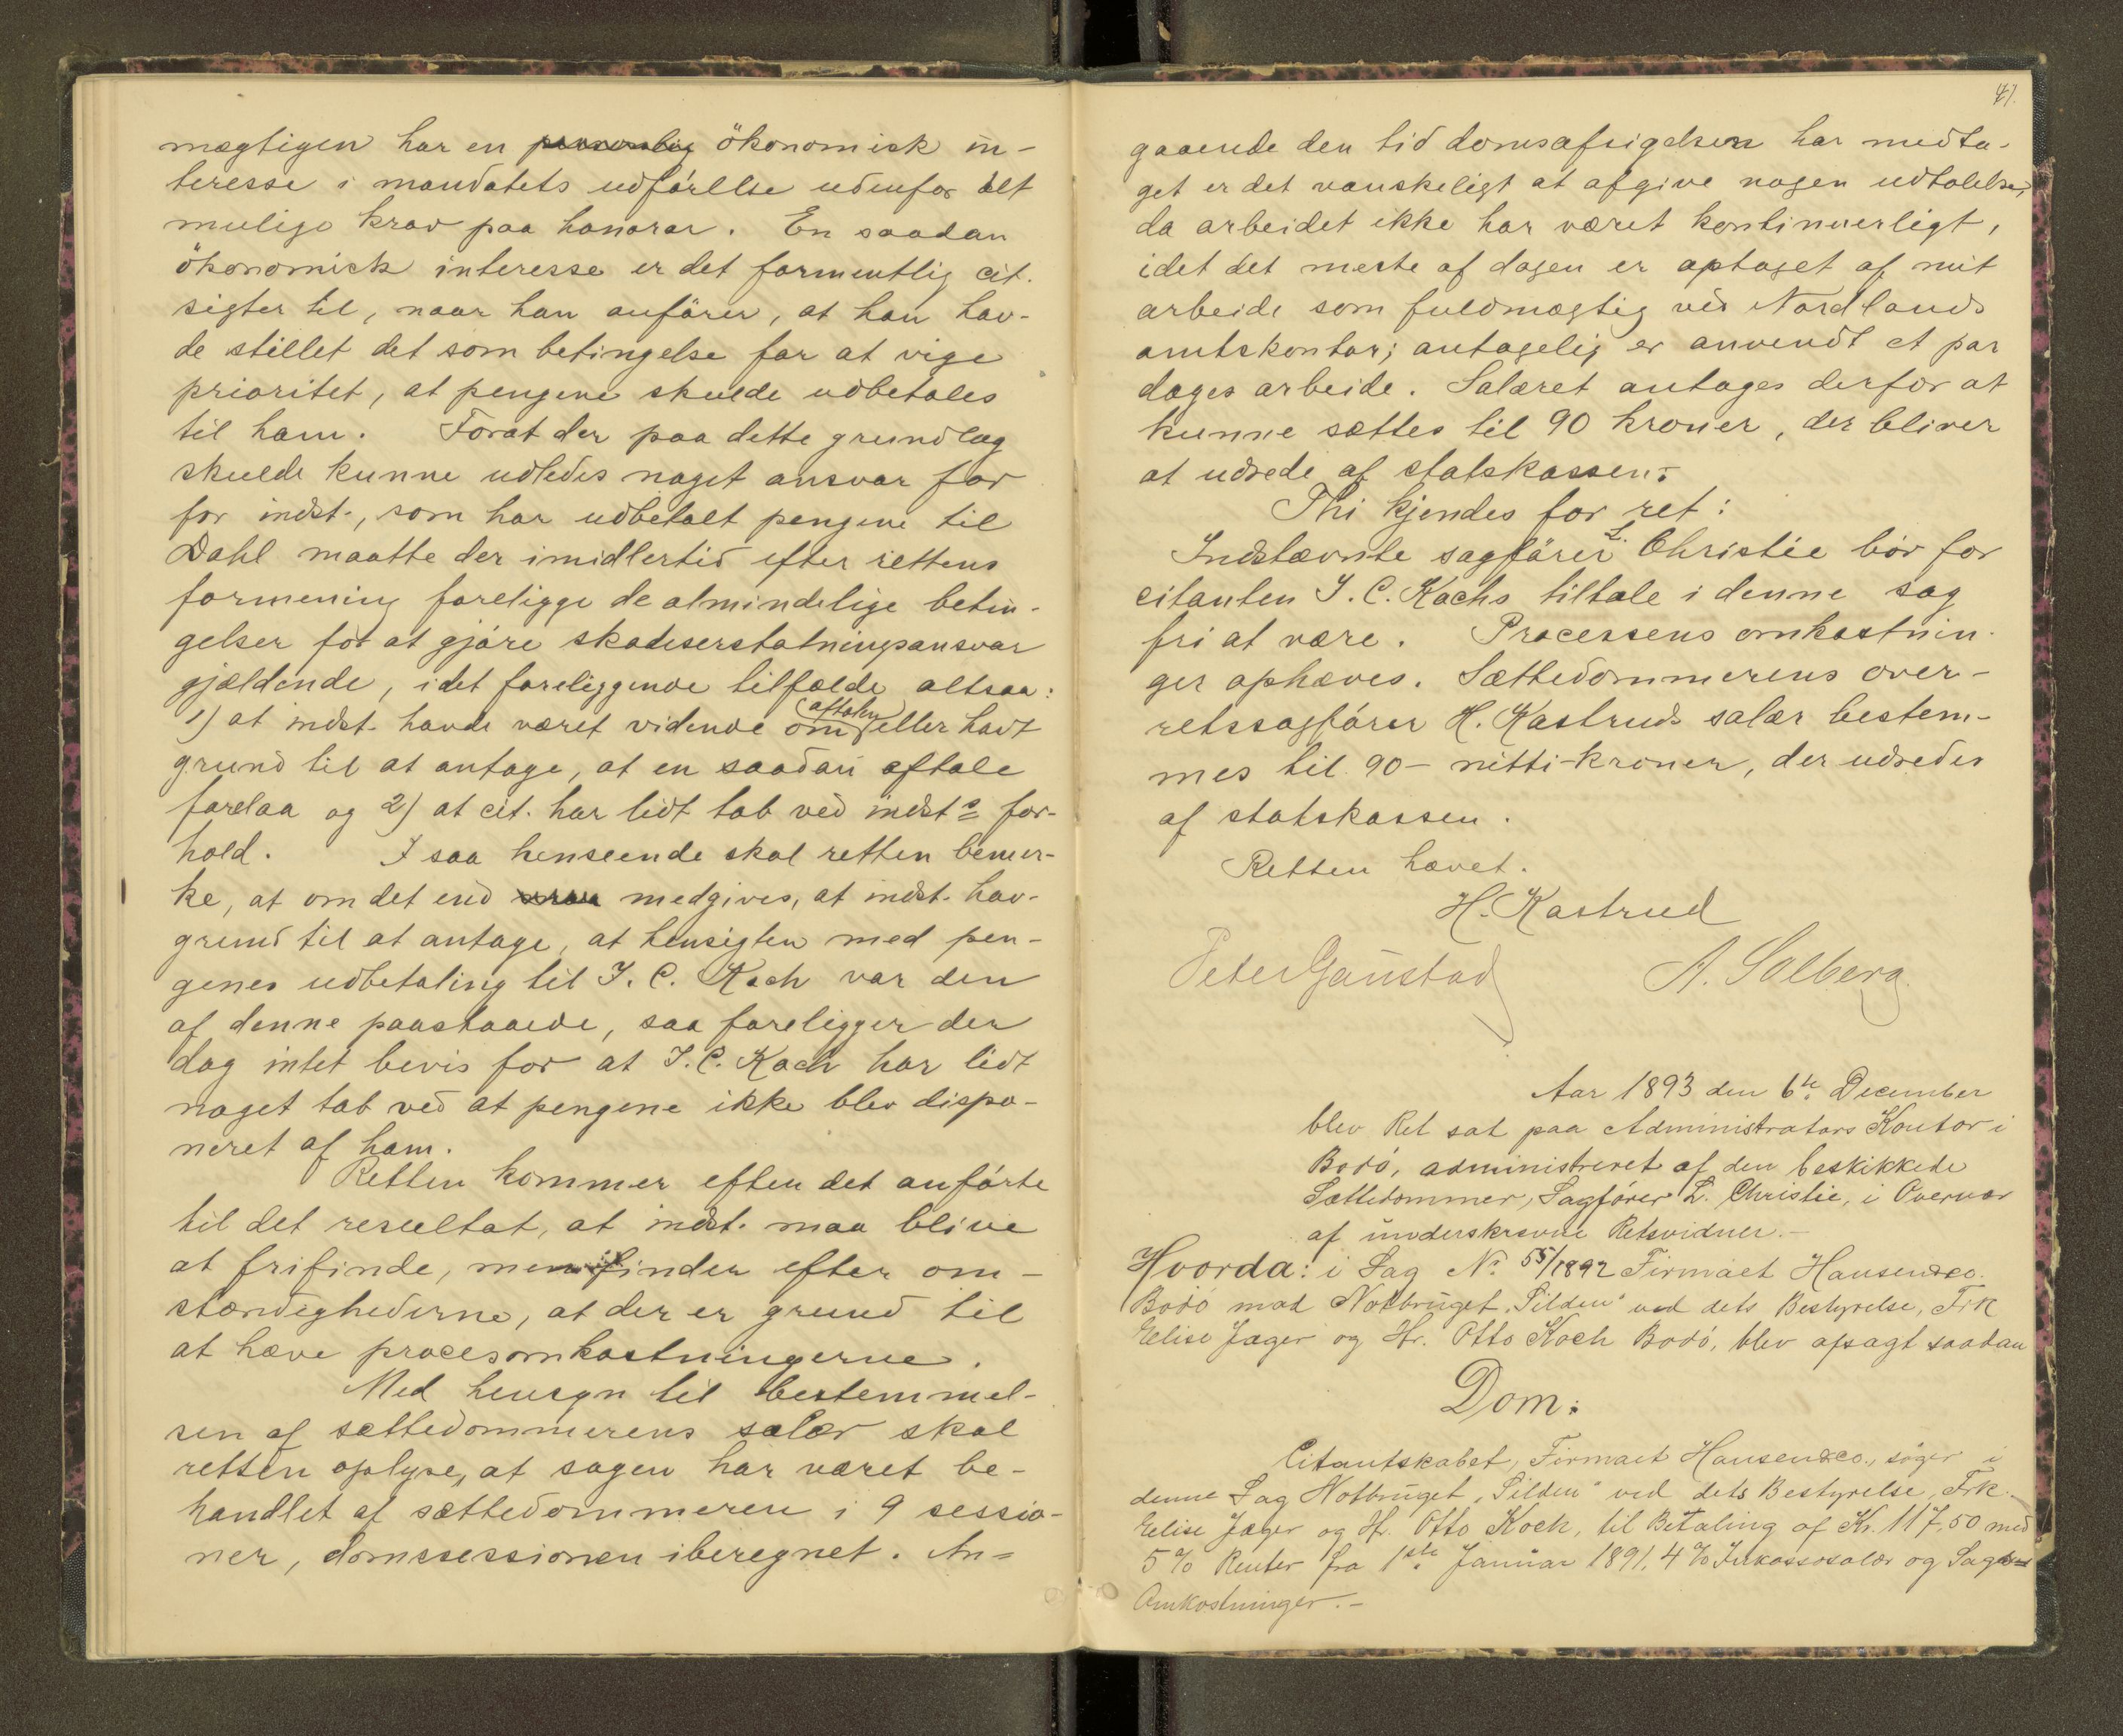 mægtigen har en personlig ökonomisk in-
teresse i mandatets udförllse udenfor alt
mulige krav paa honorar. En saadan
ökonomisk interesse er det formentlig cit.
sigter til, naar han anförer, at han hav-
de stillet det som betingelse for at vige
prioritet, at pengene skulde udbetales
til ham. Forat der paa dette grundlag
skulde kunne udledes noget ansvar for
for indst., som har udbetalt pengene til
Dahl maatte der imidlertid efter rettens
formening foreligge de almindelige betin-
gelser for at gjöre skadeserstatningsansvar
gjældende, i det foreliggende tilfælde altsaa:
1) at indst. havde været vidende om aftalen eller havt
grund til at antage, at en saadan aftale
forelaa og 2) at cit. har lidt tab ved indsts for-
hold. I saa henseende skal retten bemær-
ke, at om det end medgives, at indst. hav-
grund til at antage, at hensigten med pen-
genes udbetaling til J. C. Koch var den
af denne paastaaede, saa foreligger der
dog intet bevis for at J. C. Koch har lidt
noget tab ved at pengene ikke blev dispo-
neret af ham.
Retten kommer efter det anförte
til det resultat, at indst. maa blive
at frifinde, men finder efter om-
stændighederne, at der er grund til
at hæve procesomkostningerne.
Med hensyn til bestemmel-
sen af settedommerens salær skal
retten oplyse, at sagen har været be-
handlet af sættedommeren i 9 sessio-
ner, domssessionen iberegnet. An=
41.
gaaende den tid domsafsigelsen har medta-
get er det vanskeligt at afgive nogen udtalelse,
da arbeidet ikke har været kontinuerligt,
idet det meste af dagen er optaget af mit
arbeide som fuldmægtig ved Nordlands
amtskontor; antagelig er anvendt et par
dages arbeide. Salæret antages derfor at
kunne sættes til 90 kroner, der bliver
at udrede af statskassen.-
Thi kjendes for ret:
Indstævnte sagförer L. Christie bör for
citanten J. C. Kochs tiltale i denne sag
fri at være. Processens omkostnin-
ger ophæves. Sættedommerens over-
retssagförer H. Kastruds salær bestem-
mes til 90 - nitti-kroner, der udredes
af statskassen.
Retten hævet.
H. Kastrud
Peter Ganstad A. Solberg.
Aar 1893 den 6te December
blev Ret sat paa Administrators Kontor i
Bodö, administreret af den beskikkede
Sættedommer, Sagförer L. Christie, i Overvær
af underskrevne Retsvidner.-
Hvorda: i Sag No. 55/1892 Firmaet Hansen & co.
Bodö mod Notbruget „Silden“ ved dets Bestyrelse, Frk
Elise Jæger og Hr. Otto Koch Bodö, blev afsagt saadan
Dom:
Citantskabet, Firmaet Hansen & co., söger i
denne Sag Notbruget „Silden“ ved dets Bestyrelse, Frk.
Elise Jæger og Hr. Otto Koch, til Betaling af Kr. 117,50 med
5% Renter fra 1ste Januar 1891, 4% Inkassosalær og Sagens
Omkostninger.-